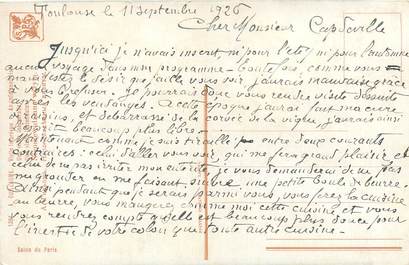 Toulouse le 11 Septembre 1926
Cher Monsieur Capdeville
Jusqu'ici je n'avais inscrit, ni pour l'été, ni pour l'automne
aucun voyage dans mon programme. Toutefois, comme vous
manifestez le désir que j'aille vous voir, j'aurais mauvaise grâce
à vous refuser. Je pourrais donc vous rendre visite
après les vendanges. A cette époque j'aurai fait ma cure
de raisins, et débarrassé de la corvée de la vigne, j'aurais ainsi
l'esprit beaucoup plus libre.
Maintenant comme je suis tiraillé par entre deux courants
contraires: celui d'aller vous voir, qui me fera grand plaisir et
celui de ne pas irriter mon entérite, je vous demanderai de ne plus
me gronder en me faisant suivre une petite boule de beurre.
Ainsi pendant que je serais parmi vous, vous ferez la cuisine
au beurre, vous mangerez comme moi cette cuisine et vous
vous rendrez compte qu'elle est beaucoup plus douce pour
l'inertie de votre colon que toute autre cuisine.
Salon de Paris